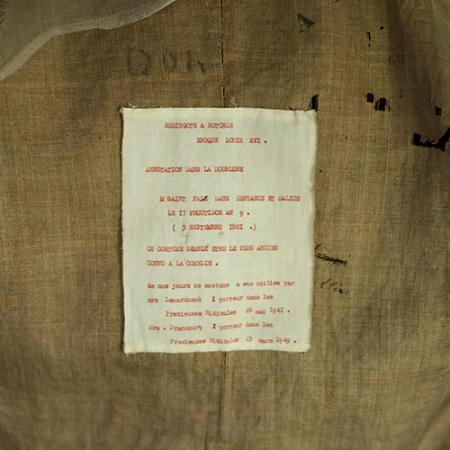 REDINGOTE A ROTONDE
EPOQUE LOUIS XVI.
ANNOTATION DANS LA DOUBLURE
M SAINT FALE DANS DEFIANCE ET MALICE
LE 17 FRUCTIDOR AN 9.
( 3 SEPTEMBRE 1801 .)
CE COSTUME SEMBLE ETRE LE PLUS ANCIEN
CONNU A LA COMEDIE .
de nos jours ce costume a ete utilise par
mrs Lemarchand 1 porteur dans les
Precieuses Ridicules 26 mai 1941.
Mrs . Drancourt 2 porteur dans les
Precieuses Ridicules 23 mars 1949.